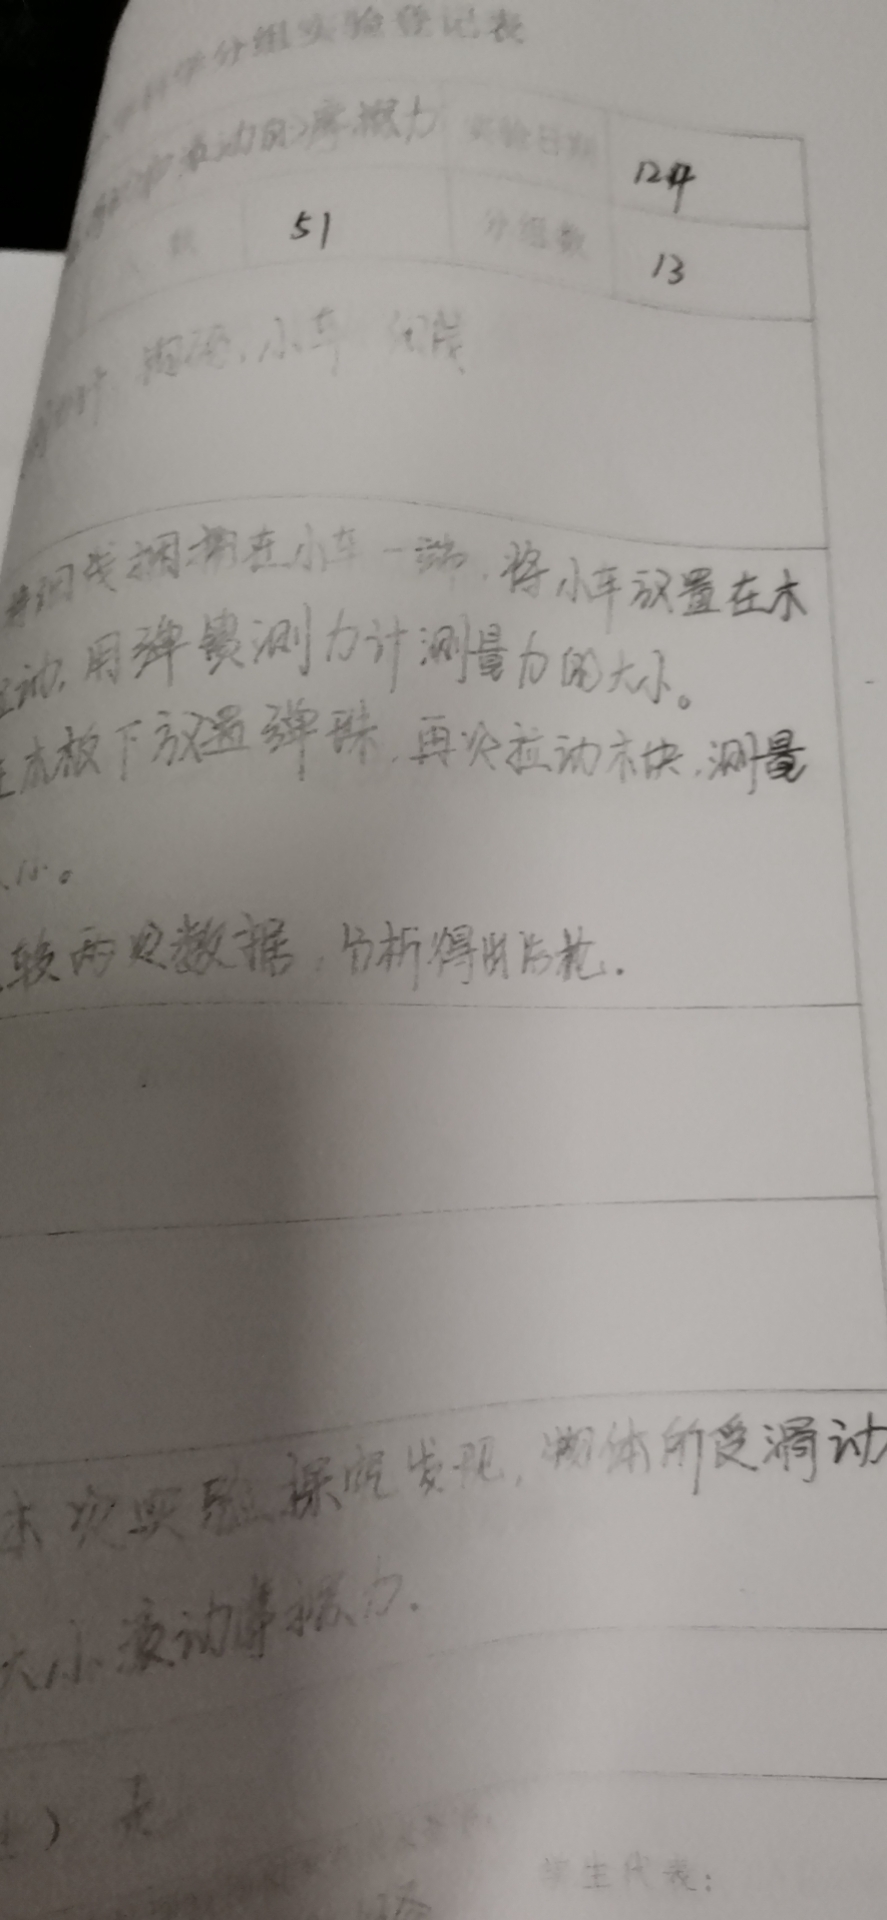 学分组实验登记表
滚动的摩擦力 实验日期 12.4
人数 51 分组数 13
钩码、小车 细线
细线捆绑在小车一端,将小车放置在木
动,用弹簧测力计测量力的大小。
木板下放置弹珠,再次拉动木块,测量
小。
较两次数据,分析得出结论.
本次实验探究发现,物体所受滑动
大小 滚动摩擦力.
) 无
学生代表: